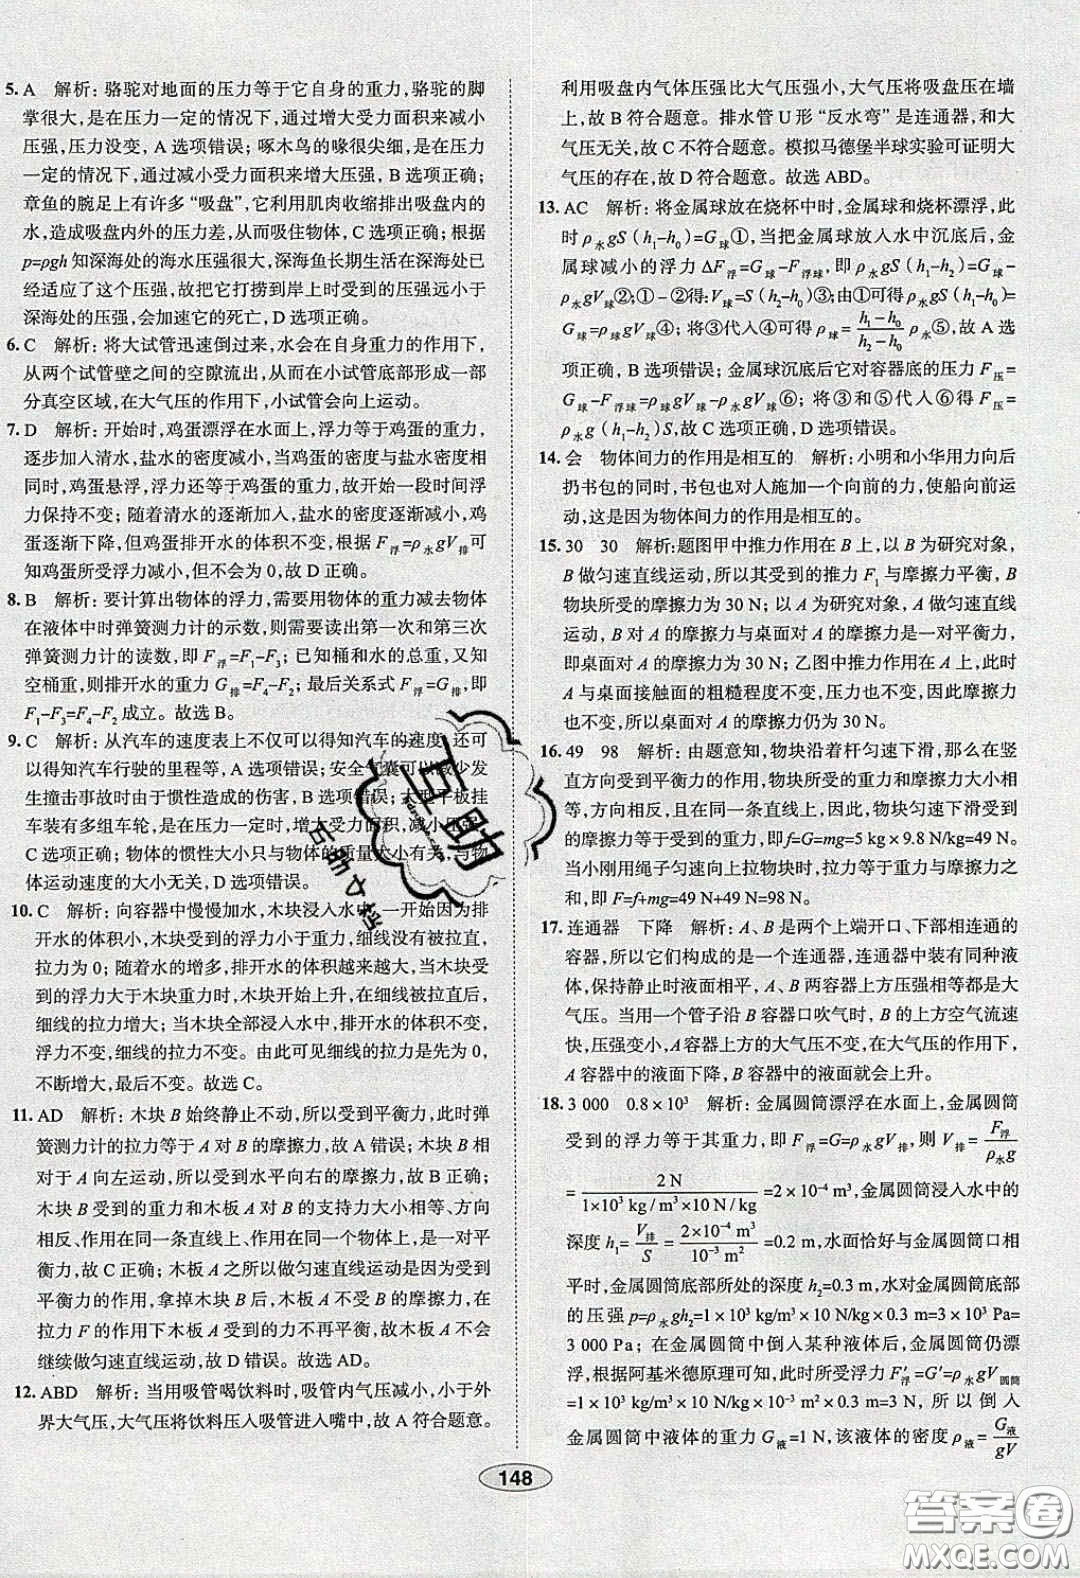 5. A 解析:骆驼对地面的压力等于它自身的重力,骆驼的脚
掌很大,是在压力一定的情况下,通过增大受力面积来减小
压强,压力没变,A选项错误;啄木鸟的喙很尖细,是在压力
一定的情况下,通过减小受力面积来增大压强,B选项正确;
章鱼的腕足上有许多“吸盘”,它利用肌肉收缩排出吸盘内的
水,造成吸盘内外的压力差,从而吸住物体,C选项正确;根据
p=ρgh知深海处的海水压强很大,深海鱼长期生活在深海处已
经适应了这个压强,故把它打捞到岸上时受到的压强远小于
深海处的压强,会加速它的死亡,D选项正确。
6. C 解析:将大试管迅速倒过来,水会在自身重力的作用下,
从两个试管壁之间的空隙流出,从而在小试管底部形成一部
分真空区域,在大气压的作用下,小试管会向上运动。
7. D 解析:开始时,鸡蛋漂浮在水面上,浮力等于鸡蛋的重力,
逐步加入清水,盐水的密度减小,当鸡蛋的密度与盐水密度相
同时,鸡蛋悬浮,浮力还等于鸡蛋的重力,故开始一段时间浮
力保持不变;随着清水的逐渐加入,盐水的密度逐渐减小,鸡
蛋逐渐下降,但鸡蛋排开水的体积不变,根据F浮=ρ水gV排可
知鸡蛋所受浮力减小,但不会为0,故D正确。
8. B 解析:要计算出物体的浮力,需要用物体的重力减去物体
在液体中时弹簧测力计的示数,则需要读出第一次和第三次
弹簧测力计的读数,即F浮=F₁-F₃;已知桶和水的总重,又知
空桶重,则排开水的重力G排=F₄-F₂;最后关系式F浮=G排,即
F₁-F₃=F₄-F₂成立。故选B。
9. C 解析:从汽车的速度表上不仅可以得知汽车的速度,还可
以得知汽车行驶的里程等,A选项错误;安全气囊可以减少发
生撞击事故时由于惯性造成的伤害,B选项错误;大型平板挂
车装有多组车轮,是在压力一定时,增大受力面积,减小压强,
C选项正确;物体的惯性大小只与物体的质量大小有关,与物
体运动速度的大小无关,D选项错误。
10. C 解析:向容器中慢慢加水,木块浸入水中,一开始因为排
开水的体积小,木块受到的浮力小于重力,细线没有被拉直,
拉力为0;随着水的增多,排开水的体积越来越大,木块受到
的浮力大于木块重力时,木块开始上升,在细线被拉直后,
细线的拉力增大;当木块全部浸入水中,排开水的体积不变,
浮力不变,细线的拉力不变。由此可见细线的拉力先为0,
不断增大,最后不变。故选C。
11. AD 解析:木块B始终静止不动,所以受到平衡力,此时弹
簧测力计的拉力等于A对B的摩擦力,故A错误;木块B相
对于A向左运动,所以受到水平向右的摩擦力,故B正确;
木块B受到的重力和木板A受到的支持力大小相等、方向
相反、作用在同一条直线上、作用在同一个物体上,是一对平
衡力,故C正确;木板A之所以做匀速直线运动是因为受到
平衡力的作用,拿掉木块B后,木板A不受B的摩擦力,在
拉力F的作用下木板A受到的力不再平衡,故木板A不会
继续做匀速直线运动,故D错误。故选AD。
12. ABD 解析:当用吸管喝饮料时,吸管内气压减小,小于外
界大气压,大气压将饮料压入吸管进入嘴中,故A符合题意。
利用吸盘内气体压强比大气压强小,大气压将吸盘压在墙
上,故B符合题意。排水管U形“反水弯”是连通器,和大
气压无关,故C不符合题意。模拟马德堡半球实验可证明大
气压的存在,故D符合题意。故选ABD。
13. AC 解析:将金属球放在烧杯中时,金属球和烧杯漂浮,此
时ρ水gS(h₁-h₀)=G球①,当把金属球放入水中沉底后,金
属球减小的浮力ΔF浮=G球-F浮球,即ρ水gS(h₁-h₂)=G球-
ρ水gV球②;①-②得:V球=S(h₂-h₀)③;由①可得ρ水gS(h₁-h₀)=
G球=ρ球gV球④;将③代入④可得ρ球=(h₁-h₀)/(h₂-h₀)ρ水⑤,故A选
项正确,B选项错误;金属球沉底后它对容器底的压力F压=
G球-F浮球=ρ球gV球-ρ水gV球⑥;将③和⑤代入⑥得F压=
ρ水g(h₁-h₂)S,故C选项正确,D选项错误。
14. 会 物体间力的作用是相互的 解析:小明和小华用力向后
扔书包的同时,书包也对人施加一个向前的力,使船向前运
动,这是因为物体间力的作用是相互的。
15. 30 30 解析:题图甲中推力作用在B上,以B为研究对象,
B做匀速直线运动,所以其受到的推力F₁与摩擦力平衡,B
物块所受的摩擦力为30 N;以A为研究对象,A做匀速直线
运动,B对A的摩擦力与桌面对A的摩擦力是一对平衡力,
即桌面对A的摩擦力为30 N;乙图中推力作用在A上,此时
A与桌面接触面的粗糙程度不变,压力也不变,因此摩擦力
不变,所以桌面对A的摩擦力仍为30 N。
16. 49 98 解析:由题意知,物块沿着杆匀速下滑,那么在竖
直方向受到平衡力的作用,物块所受的重力和摩擦力大小相
等,方向相反,且在同一条直线上,因此,物块匀速下滑受到
的摩擦力等于受到的重力,即f=G=mg=5 kg×9.8 N/kg=49 N。
当小刚用绳子匀速向上拉物块时,拉力等于重力与摩擦力
的和,即F=f+mg=49 N+49 N=98 N。
17. 连通器 下降 解析:A、B是两个上端开口、下部相连通的
容器,所以它们构成的是一个连通器,连通器中装有同种液
体,保持静止时液面相平,A、B两容器上方压强相等都是大
气压。当用一个管子沿B容器口吹气时,B的上方空气流速
快,压强变小,A容器上方的大气压不变,在大气压的作用下,
A容器中的液面下降,B容器中的液面就会上升。
18. 3 000 0.8×10³ 解析:金属圆筒漂浮在水面上,金属圆筒
受到的浮力等于其重力,即F浮=G=ρ水gV排,则V排=F浮/(ρ水g)
=2 N/(1×10³ kg/m³×10 N/kg)=2×10⁻⁴ m³,金属圆筒浸入水中的
深度h₁=V排/S=(2×10⁻⁴ m³)/(10⁻³ m²)=0.2 m,水面恰好与金属圆筒口相
平时,金属圆筒底部所处的深度h₂=0.3 m,水对金属圆筒底部
的压强p=ρ水gh₂=1×10³ kg/m³×10 N/kg×0.3 m=3×10³ Pa=
3 000 Pa;在金属圆筒中倒入某种液体后,金属圆筒仍漂
浮,根据阿基米德原理可知,此时所受浮力F′浮=G′=ρ水gV圆筒
=1×10³ kg/m³×10 N/kg×10⁻³ m²×0.3 m=3 N,所以倒入
金属圆筒中液体的重力G液=1 N,该液体的密度ρ液=G液/(gV)
148
互助
答案圈
MXQE.COM